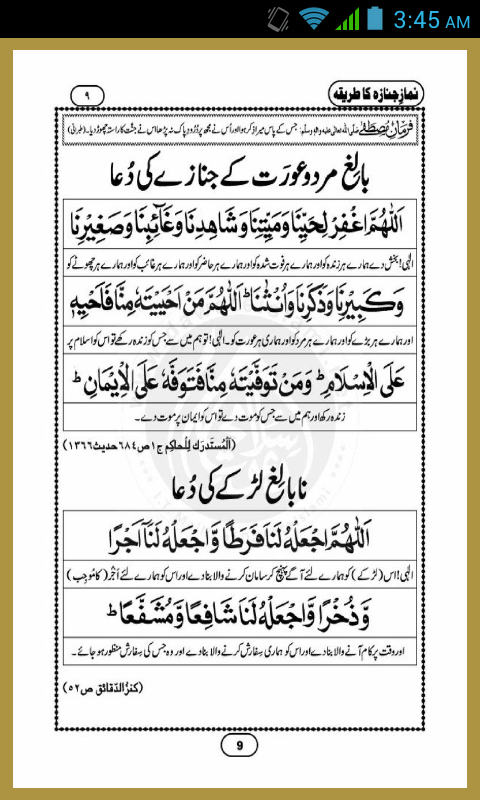 3:45 AM
۹
نمازِ جنازہ کا طریقہ
فرمانِ مصطفےٰ صلی اللہ تعالیٰ علیہ والہ وسلم: جس کے پاس میرا ذکر ہوا اور اُس نے مجھ پر دُرودِ پاک نہ پڑھا اس نے جنّت کا راستہ چھوڑ دیا۔ (طبرانی)
بالِغ مرد و عورَت کے جنازے کی دُعا
اَللّٰهُمَّ اغْفِرْ لِحَيِّنَا وَمَيِّتِنَا وَشَاهِدِنَا وَغَآئِبِنَا وَصَغِيْرِنَا
الٰہی! بخش دے ہمارے ہر زندہ کو اور ہمارے ہر فوت شدہ کو اور ہمارے ہر حاضر کو اور ہمارے ہر غائب کو اور ہمارے ہر چھوٹے کو
وَكَبِيْرِنَا وَذَكَرِنَا وَاُنْثٰنَا ؕ اَللّٰهُمَّ مَنْ اَحْيَيْتَهٗ مِنَّا فَاَحْيِهٖ
اور ہمارے ہر بڑے کو اور ہمارے ہر مرد کو اور ہماری ہر عورت کو۔ الٰہی! تو ہم میں سے جس کو زندہ رکھے تو اس کو اسلام پر
عَلَى الْاِسْلَامِ ؕ وَمَنْ تَوَفَّيْتَهٗ مِنَّا فَتَوَفَّهٗ عَلَى الْاِيْمَانِ ؕ
زندہ رکھ اور ہم میں سے جس کو موت دے تو اس کو ایمان پر موت دے۔
(اَلْمُستَدرَك لِلْحاكِم ج۱ ص۶۸۴ حدیث۱۳۶۶)
نابالِغ لڑکے کی دُعا
اَللّٰهُمَّ اجْعَلْهُ لَنَا فَرَطًا وَّاجْعَلْهُ لَنَآ اَجْرًا
الٰہی! اس (لڑکے) کو ہمارے لئے آگے پہنچ کر سامان کرنے والا بنا دے اور اس کو ہمارے لئے اَجْر (کا مُوجِب)
وَّذُخْرًا وَّاجْعَلْهُ لَنَا شَافِعًا وَّمُشَفَّعًا ؕ
اور وقت پر کام آنے والا بنا دے اور اس کو ہماری سِفارش کرنے والا بنا دے اور وہ جس کی سِفارش منظور ہو جائے۔
(کنزُ الدَّقائق ص۵۲)
9